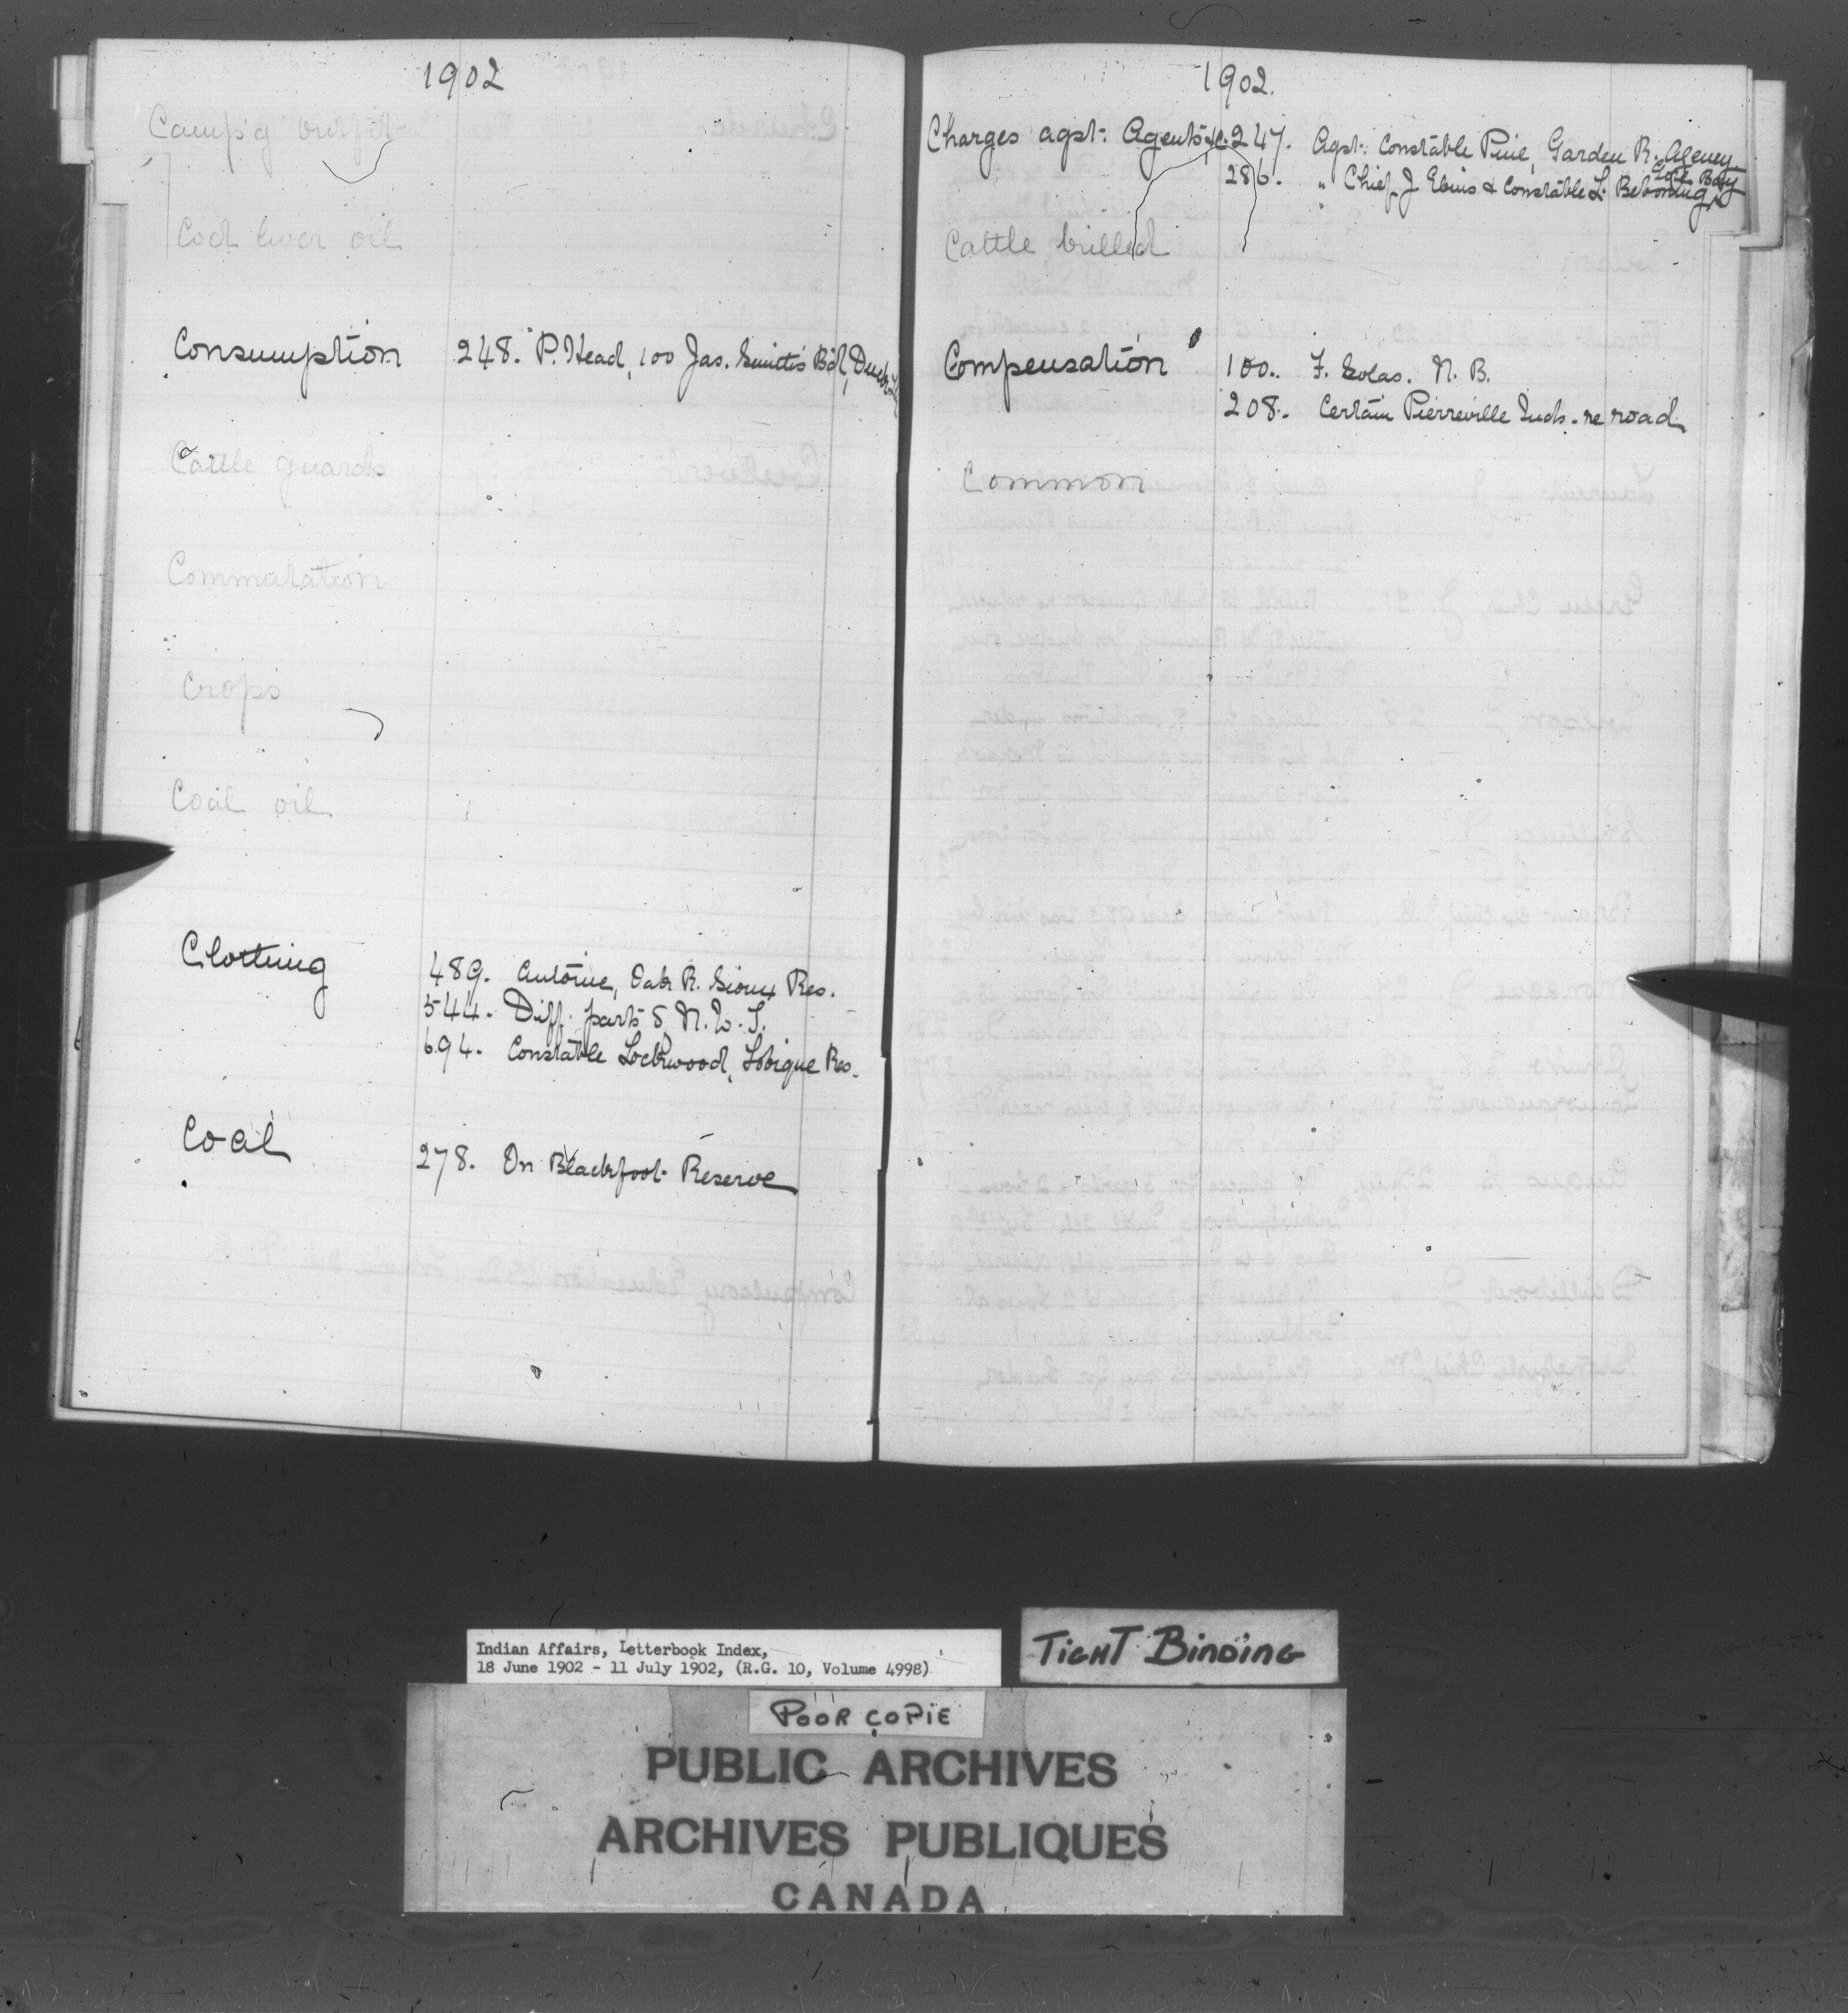 1902
Camp'g outfit
Cod liver oil
Consumption 248. P. Head, 100 Jas. Smith's Bd, Duck L
Cattle guards
Commutation
Crops
Coal oil
Clothing 489. Antoine, Oak R. Sioux Res.
544. Diff. parts of N. W. T.
694. Constable Lockwood, Tobique Res.
Coal 278. On Blackfoot Reserve
1902.
Charges agst. Agents &c. 247. Agst. Constable Pine, Garden R. Agency
286. " Chief J & Constable L.
Gore Bay
Cattle killed
Compensation 100. F. N. B.
208. Certain Pierreville Inds. re road
Common
Indian Affairs, Letterbook Index,
18 June 1902 - 11 July 1902, (R.G. 10, Volume 4998)
TIGHT BINDING
POOR COPIE
PUBLIC ARCHIVES
ARCHIVES PUBLIQUES
CANADA